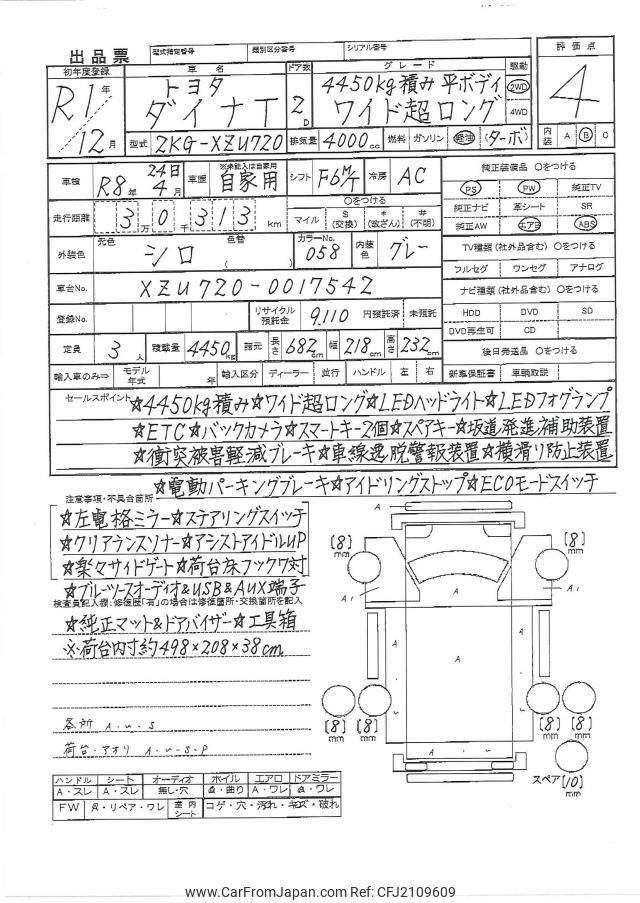 出品票 型式指定番号 類別区分番号 シリアル番号
初年度登録 車名 ドア数 グレード 駆動 評価点
R1年 トヨタ 4450kg積み 平ボディ 2WD 4
12月 ダイナT 2D ワイド超ロング 4WD
型式 2KG-XZU720 排気量 4000cc 燃料 ガソリン 軽油 (ターボ) 内装 A B C
車検 R8年 4月 24日 車歴 ※未記入は自家用 自家用 シフト F6M/T 冷房 AC 純正装備品 〇をつける
PS PW 純正TV
走行距離 3万0千313km 〇をつける マイル $(交換) *(改ざん) #(不明) 純正ナビ 革シート SR
純正AW エアB ABS
外装色 元色 シロ 色替 ( ) カラーNo. 058 内装色 グレー TV種類(社外品含む) 〇をつける
フルセグ ワンセグ アナログ
車台No. XZU720-0017542 ナビ種類(社外品含む) 〇をつける
登録No. リサイクル預託金 9,110 円預託済 未預託 HDD DVD SD
DVD再生可 CD
定員 3人 積載量 4450kg 諸元 長さ 682cm 幅 218cm 高さ 232cm 後日発送品 〇をつける
輸入車のみ⇒ モデル年式 年 輸入区分 ディーラー 並行 ハンドル 左 右 新車保証書 車輌取説
セールスポイント ☆4450kg積み☆ワイド超ロング☆LEDヘッドライト☆LEDフォグランプ
☆ETC☆バックカメラ☆スマートキー2個☆スペアキー☆坂道発進補助装置
☆衝突被害軽減ブレーキ☆車線逸脱警報装置☆横滑り防止装置
☆電動パーキングブレーキ☆アイドリングストップ☆ECOモードスイッチ
注意事項・不具合箇所
☆左電格ミラー☆ステアリングスイッチ
☆クリアランスソナー☆アシストアイドルUP
☆楽々サイドゲート☆荷台床フック7対
☆ブルーツースオーディオ&USB&AUX端子
検査員記入欄:修復歴「有」の場合は修復箇所・交換箇所を記入
☆純正マット&ドアバイザー☆工具箱
※荷台内寸約498×208×38cm
各所 A・U・S
荷台・アオリ A・U・S・P
A
[8]mm [8]mm
A1 A A1
A A A
[8]mm [8]mm [8]mm [8]mm
A
スペア[10]mm
ハンドル シート オーディオ ホイル エアロ ドアミラー
A・スレ A・スレ 無し・穴 A・曲り A・ワレ A・ワレ
FW A・リペア・ワレ 室内シート コゲ・穴・汚れ・キズ・破れ
www.CarFromJapan.com Ref: CFJ2109609